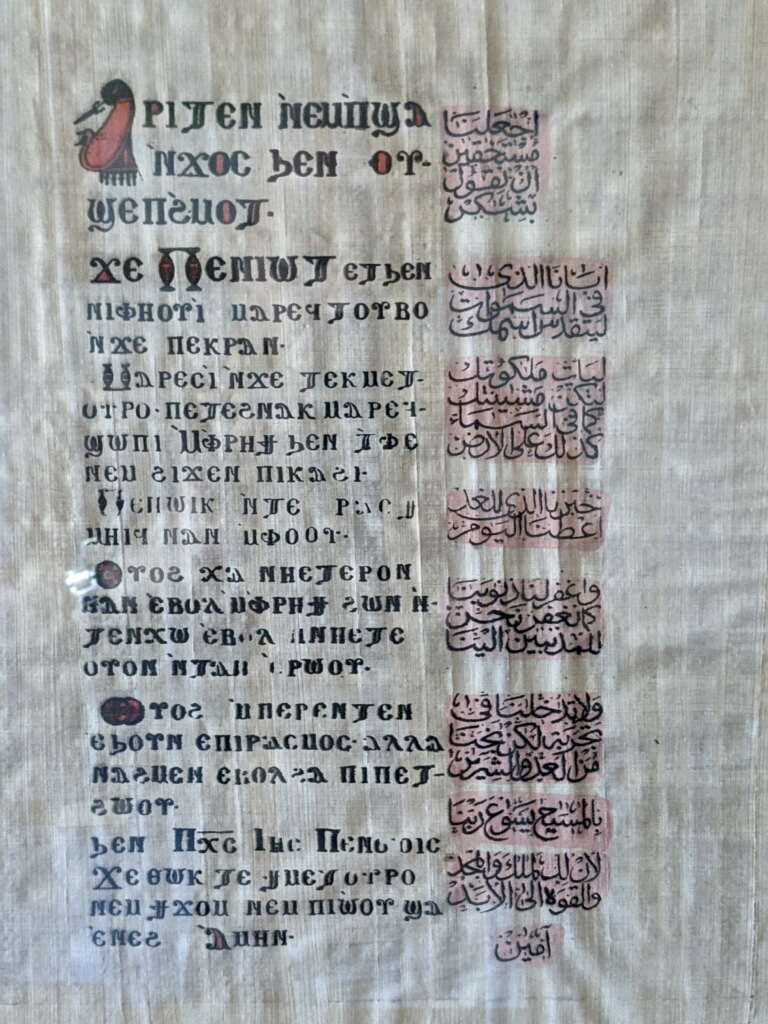 Ⲁⲣⲓⲧⲉⲛ ⲛ̀ⲉⲙⲡ̀ϣⲁ
ⲛ̀ϫⲟⲥ ϧⲉⲛ ⲟⲩ-
ϣⲉⲡϩ̀ⲙⲟⲧ·
ϫⲉ Ⲡⲉⲛⲓⲱⲧ ⲉⲧϧⲉⲛ
ⲛⲓⲫⲏⲟⲩⲓ̀ ⲙⲁⲣⲉϥⲧⲟⲩⲃⲟ
ⲛ̀ϫⲉ ⲡⲉⲕⲣⲁⲛ·
Ⲙⲁⲣⲉⲥⲓ̀ ⲛ̀ϫⲉ ⲧⲉⲕⲙⲉⲧ-
ⲟⲩⲣⲟ· ⲡⲉⲧⲉϩⲛⲁⲕ ⲙⲁⲣⲉϥ-
ϣⲱⲡⲓ ⲙ̀ⲫⲣⲏϯ ϧⲉⲛ ⲧⲫⲉ
ⲛⲉⲙ ϩⲓϫⲉⲛ ⲡⲓⲕⲁϩⲓ·
Ⲡⲉⲛⲱⲓⲕ ⲛ̀ⲧⲉ ⲣⲁⲥϯ
ⲙⲏⲓϥ ⲛⲁⲛ ⲙ̀ⲫⲟⲟⲩ·
Ⲟⲩⲟϩ ⲭⲁ ⲛⲏⲉⲧⲉⲣⲟⲛ
ⲛⲁⲛ ⲉⲃⲟⲗ ⲙ̀ⲫⲣⲏϯ ϩⲱⲛ ⲛ̀-
ⲧⲉⲛⲭⲱ ⲉⲃⲟⲗ ⲛ̀ⲛⲏⲉⲧⲉ
ⲟⲩⲟⲛ ⲛ̀ⲧⲁⲛ ⲉ̀ⲣⲱⲟⲩ·
Ⲟⲩⲟϩ ⲙ̀ⲡⲉⲣⲉⲛⲧⲉⲛ
ⲉϧⲟⲩⲛ ⲉⲡⲓⲣⲁⲥⲙⲟⲥ· ⲁⲗⲗⲁ
ⲛⲁϩⲙⲉⲛ ⲉⲃⲟⲗϩⲁ ⲡⲓⲡⲉⲧ-
ϩⲱⲟⲩ·
ϧⲉⲛ Ⲡⲭ̅ⲥ̅ Ⲓⲏⲥ Ⲡⲉⲛϭⲟⲓⲥ
ϫⲉ ⲑⲱⲕ ⲧⲉ ϯⲙⲉⲧⲟⲩⲣⲟ
ⲛⲉⲙ ϯϫⲟⲙ ⲛⲉⲙ ⲡⲓⲱ̀ⲟⲩ ϣⲁ
ⲉⲛⲉϩ Ⲁⲙⲏⲛ·
اجعلنا
مستحقين
ان نقول
بشكر
ابانا الذى
في السموات
ليتقدس اسمك
ليات ملكوتك
لتكن مشيئتك
كما في السماء
كذلك على الارض
خبزنا الذى للغد
اعطنا اليوم
واغفر لنا ذنوبنا
كما نغفر نحن
للمذنبين الينا
ولا تدخلنا في
تجربة لكن نجنا
من العدو الشرير
بالمسيح يسوع ربنا
لان لك الملك والمجد
والقوة الى الابد
آمين